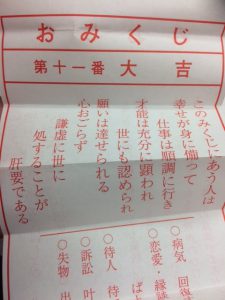 おみくじ
第十一番 大吉
このみくじにあう人は
幸せが身に備って
仕事は順調に行き
才能は充分に顕われ
世にも認められ
願いは達せられる
心おごらず
謙虚に世に
処することが
肝要である
○病気 回復
○恋愛・縁談
○待人 待
○訴訟 叶
○失物 出